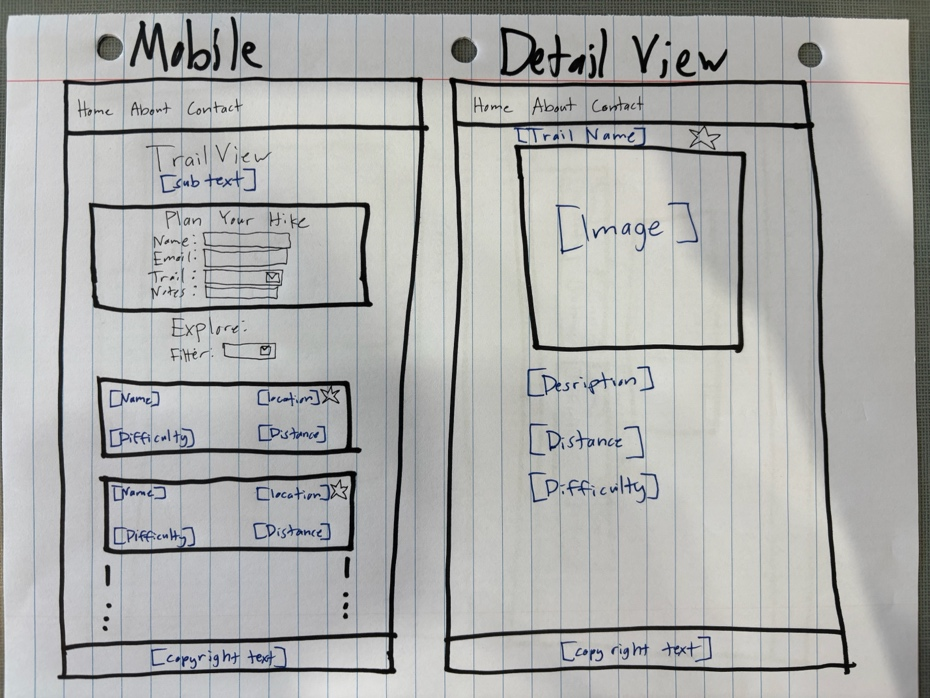 Mobile
Home About Contact
Trail View
[sub text]
Plan Your Hike
Name:
Email:
Trail:
Notes:
Explore:
Filter:
[Name] [location]
[Difficulty] [Distance]
[Name] [location]
[Difficulty] [Distance]
[copyright text]
Detail View
Home About Contact
[Trail Name]
[Image]
[Desription]
[Distance]
[Difficulty]
[copy right text]